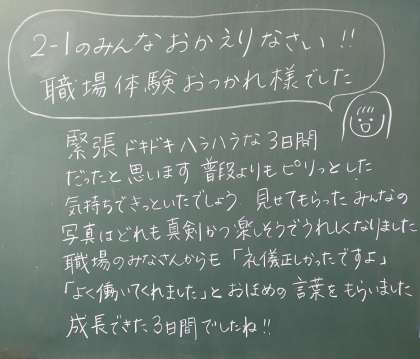 2-1のみんなおかえりなさい!!
職場体験おつかれ様でした
緊張ドキドキハラハラな3日間
だったと思います 普段よりもピリっとした
気持ちできっといたでしょう 見せてもらったみんなの
写真はどれも真剣かつ楽しそうでうれしくなりました
職場のみなさんからも「礼儀正しかったですよ」
「よく働いてくれました」とおほめの言葉をもらいました
成長できた3日間でしたね!!